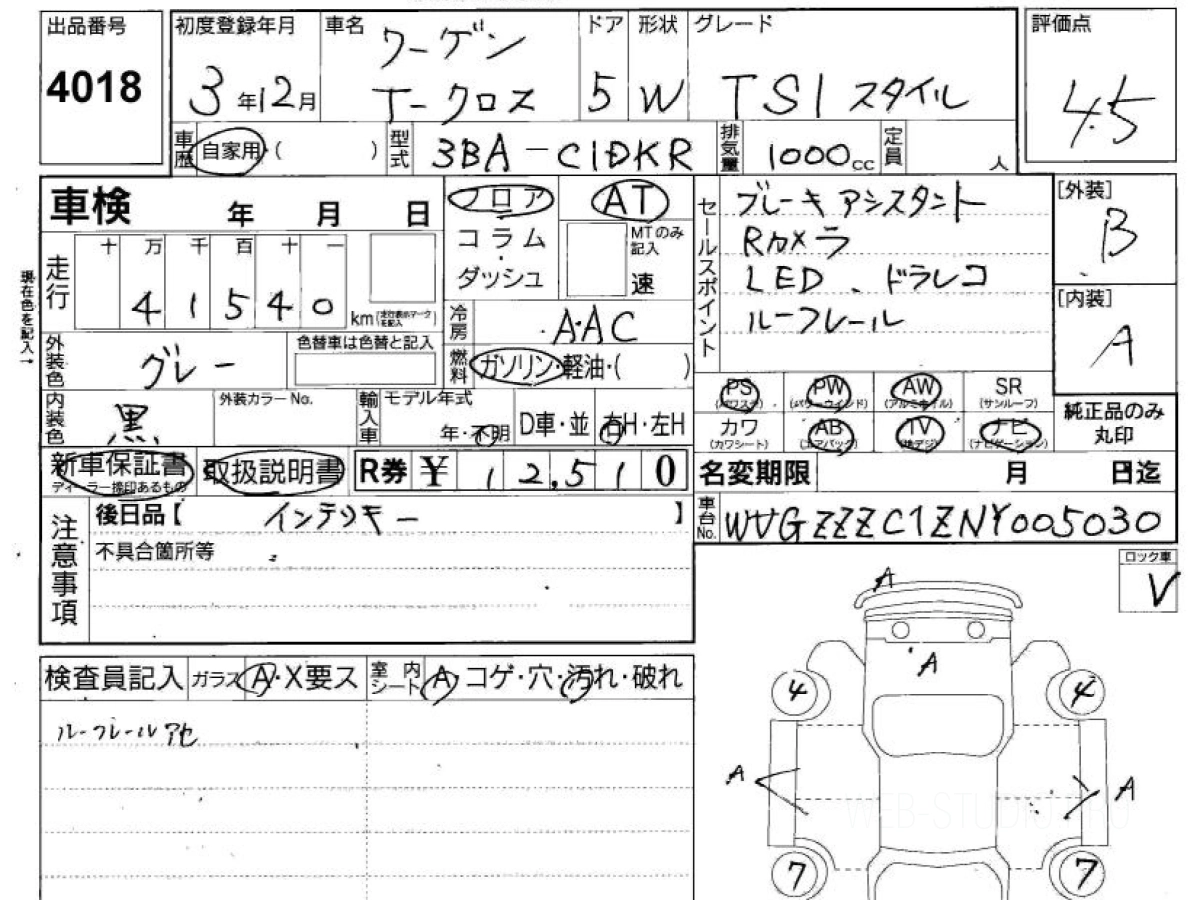 出品番号 4018
初度登録年月 3年12月
車名 ワーゲン
T-クロス
ドア 5
形状 W
グレード TSI スタイル
評価点 4.5
車歴 自家用・( )
型式 3BA-C1DKR
排気量 1000cc
定員 人
車検 年 月 日
フロア
コラム
・
ダッシュ
AT
MTのみ記入
速
セールスポイント
ブレーキアシスタント
Rカメラ
LED、ドラレコ
ルーフレール
[外装]
B
[内装]
A
現在色を記入→
走行 十万千百十一
41540 km (走行表示マークを記入)
冷房 A・AC
外装色 グレー
色替車は色替と記入
燃料 ガソリン・軽油・( )
PS (パワステ) PW (パワーウインド) AW (アルミホイル) SR (サンルーフ)
カワ (カワシート) AB (エアバック) TV (地デジ) ナビ (ナビゲーション)
純正品のみ
丸印
内装色 黒
外装カラーNo.
輸入車 モデル年式
年・不明
D車・並
右H・左H
新車保証書
ディーラー捺印あるもの
取扱説明書
R券 ¥ 12,510
名変期限 月 日迄
注意事項
後日品【 インテリキー 】
不具合箇所等
車台No. WVGZZZC1ZNY005030
ロック車
V
検査員記入 ガラス A・X要ス 室内シート A・コゲ・穴・汚れ・破れ
ルーフレールアセ
A
A
4 4
A A
7 7
WEB-STUDIO.PRO